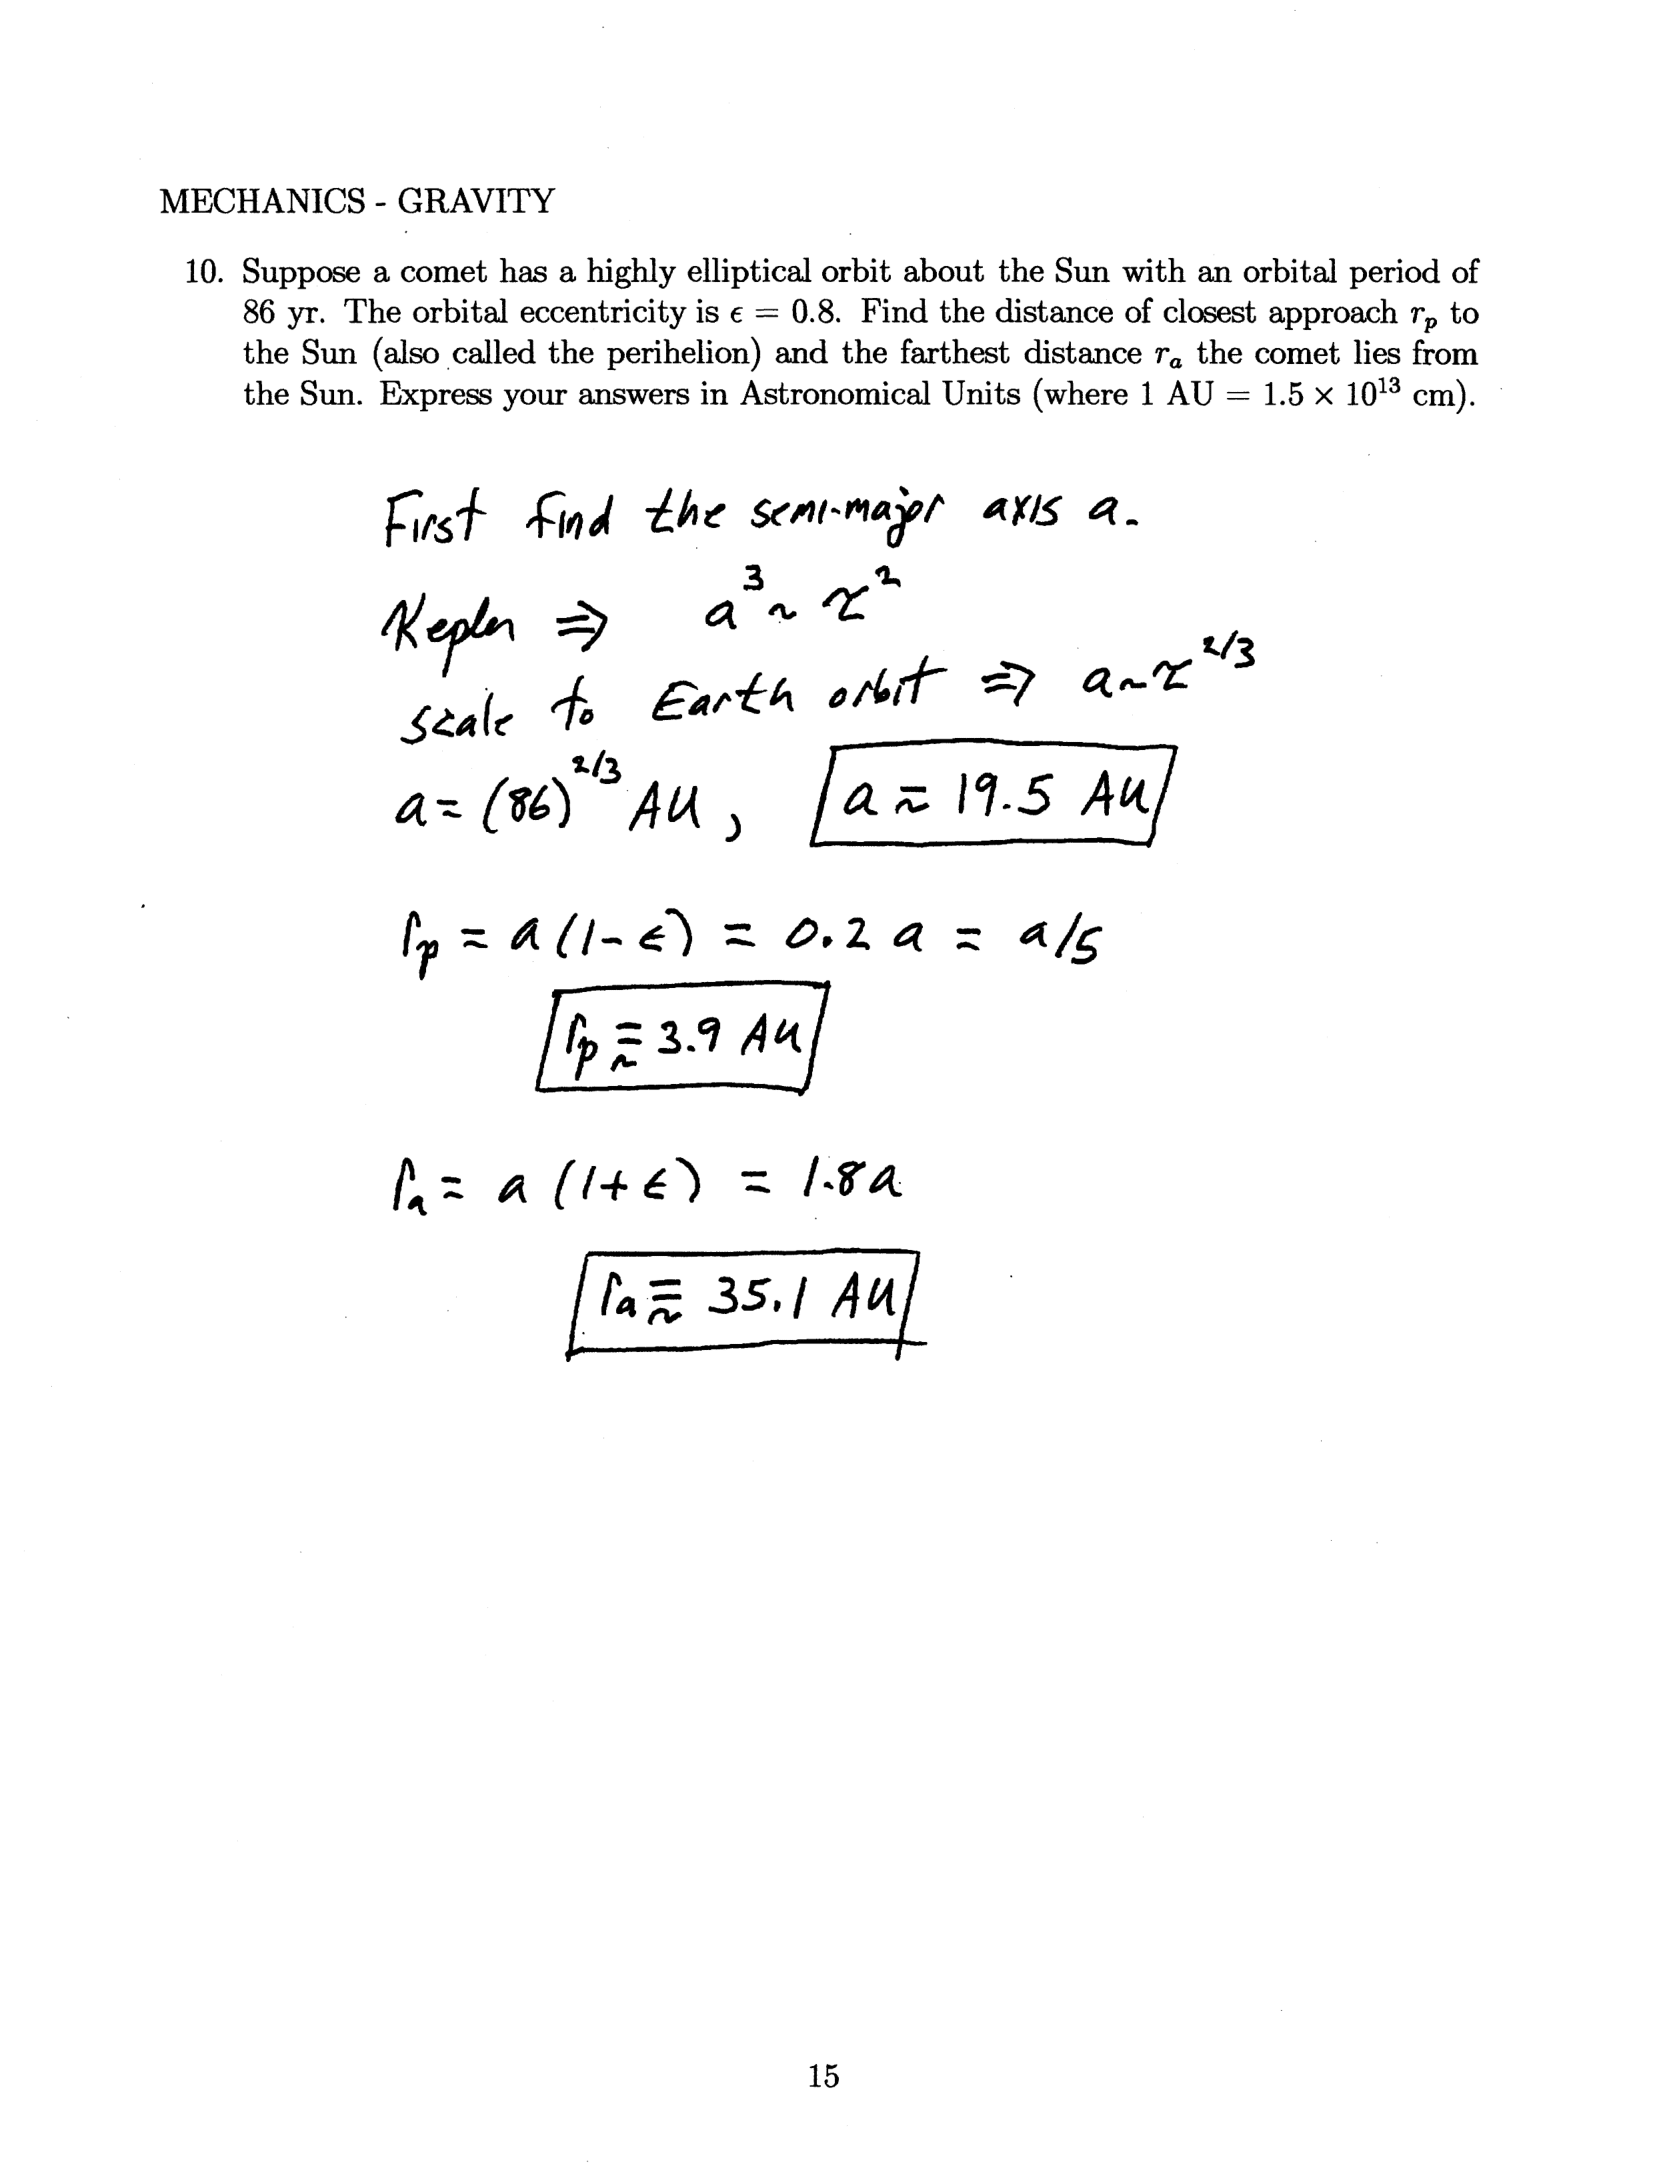 MECHANICS - GRAVITY
10. Suppose a comet has a highly elliptical orbit about the Sun with an orbital period of
86 yr. The orbital eccentricity is ϵ = 0.8. Find the distance of closest approach r_p to
the Sun (also called the perihelion) and the farthest distance r_a the comet lies from
the Sun. Express your answers in Astronomical Units (where 1 AU = 1.5 × 10^13 cm).
First find the semi-major axis a.
Kepler ⇒ a^3 ~ τ^2
scale to Earth orbit ⇒ a ~ τ^2/3
a = (86)^2/3 AU, a ≈ 19.5 AU
r_p = a (1-ϵ) = 0.2 a = a/5
r_p ≅ 3.9 AU
r_a = a (1+ϵ) = 1.8a
r_a ≅ 35.1 AU
15